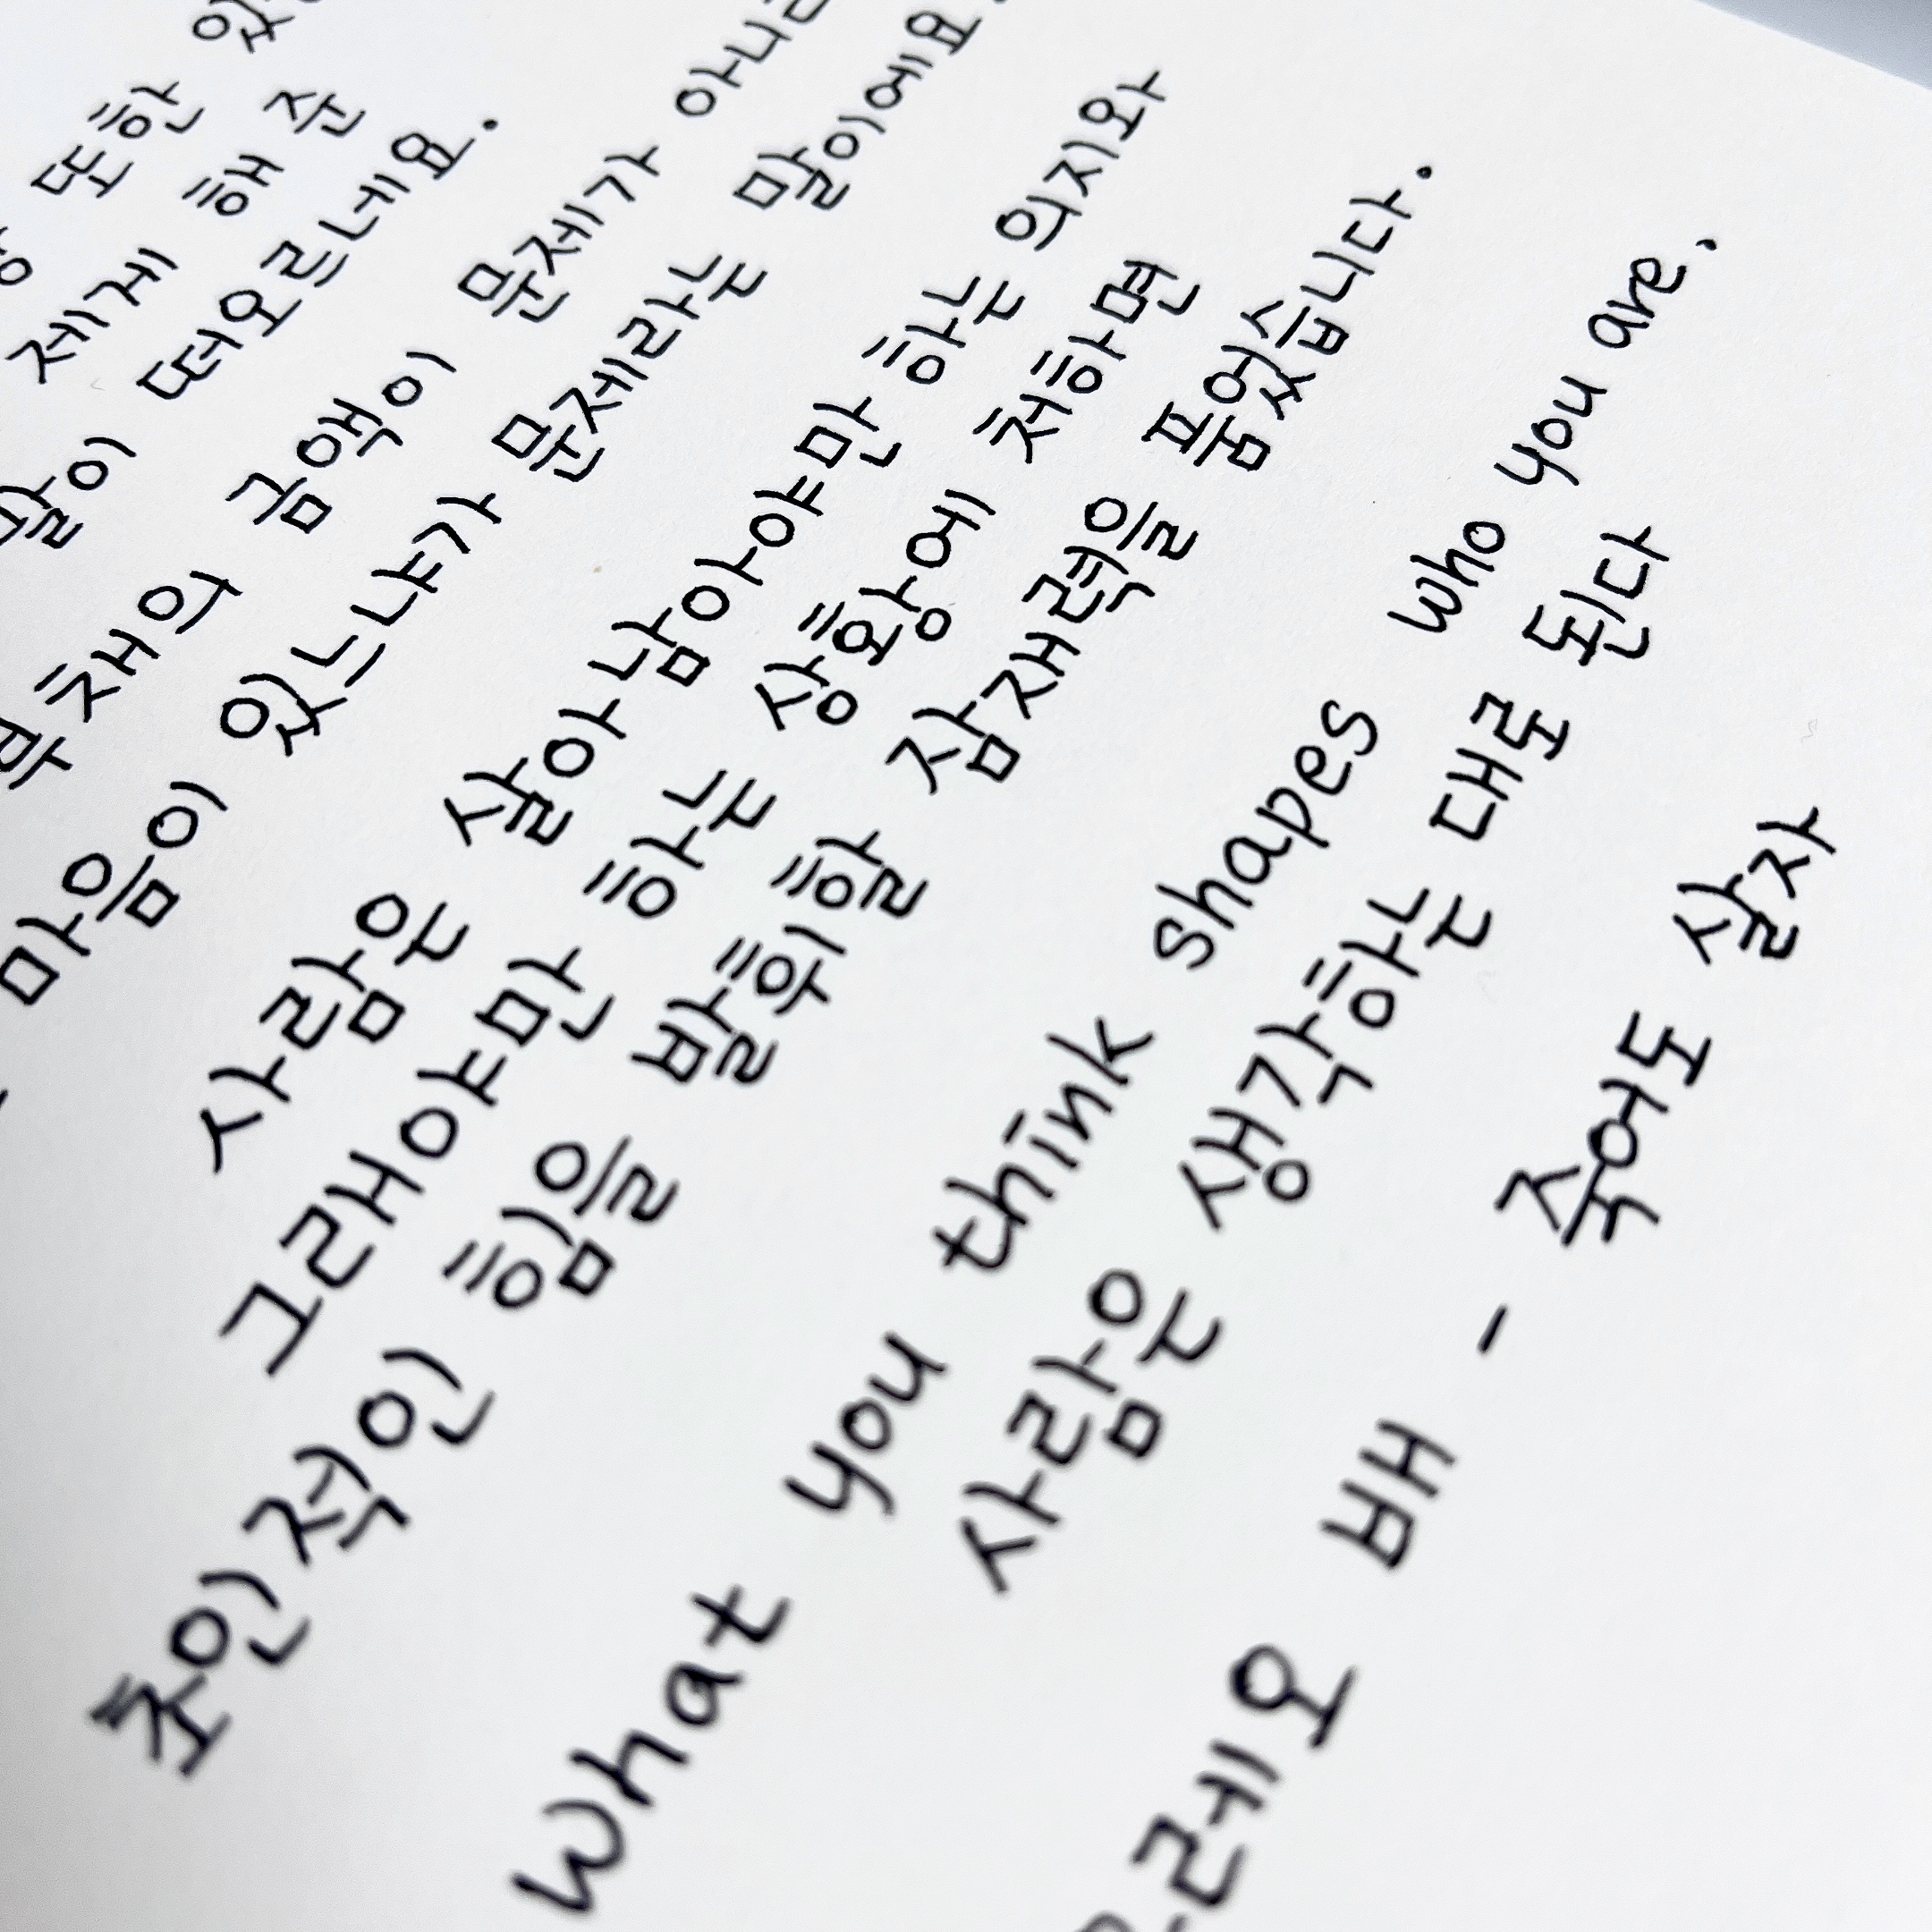 또한
제게 해 준
말이 떠오르네요.
부채의 금액이 문제가
마음이 있느냐가 문제라는 말이에요.
사람은 살아남아야만 하는 의지와
그래야만 하는 상황에 처하면
초인적인 힘을 발휘할 잠재력을 품었습니다.
What you think shapes who you are.
사람은 생각하는 대로 된다
뻐 - 죽어도 살자